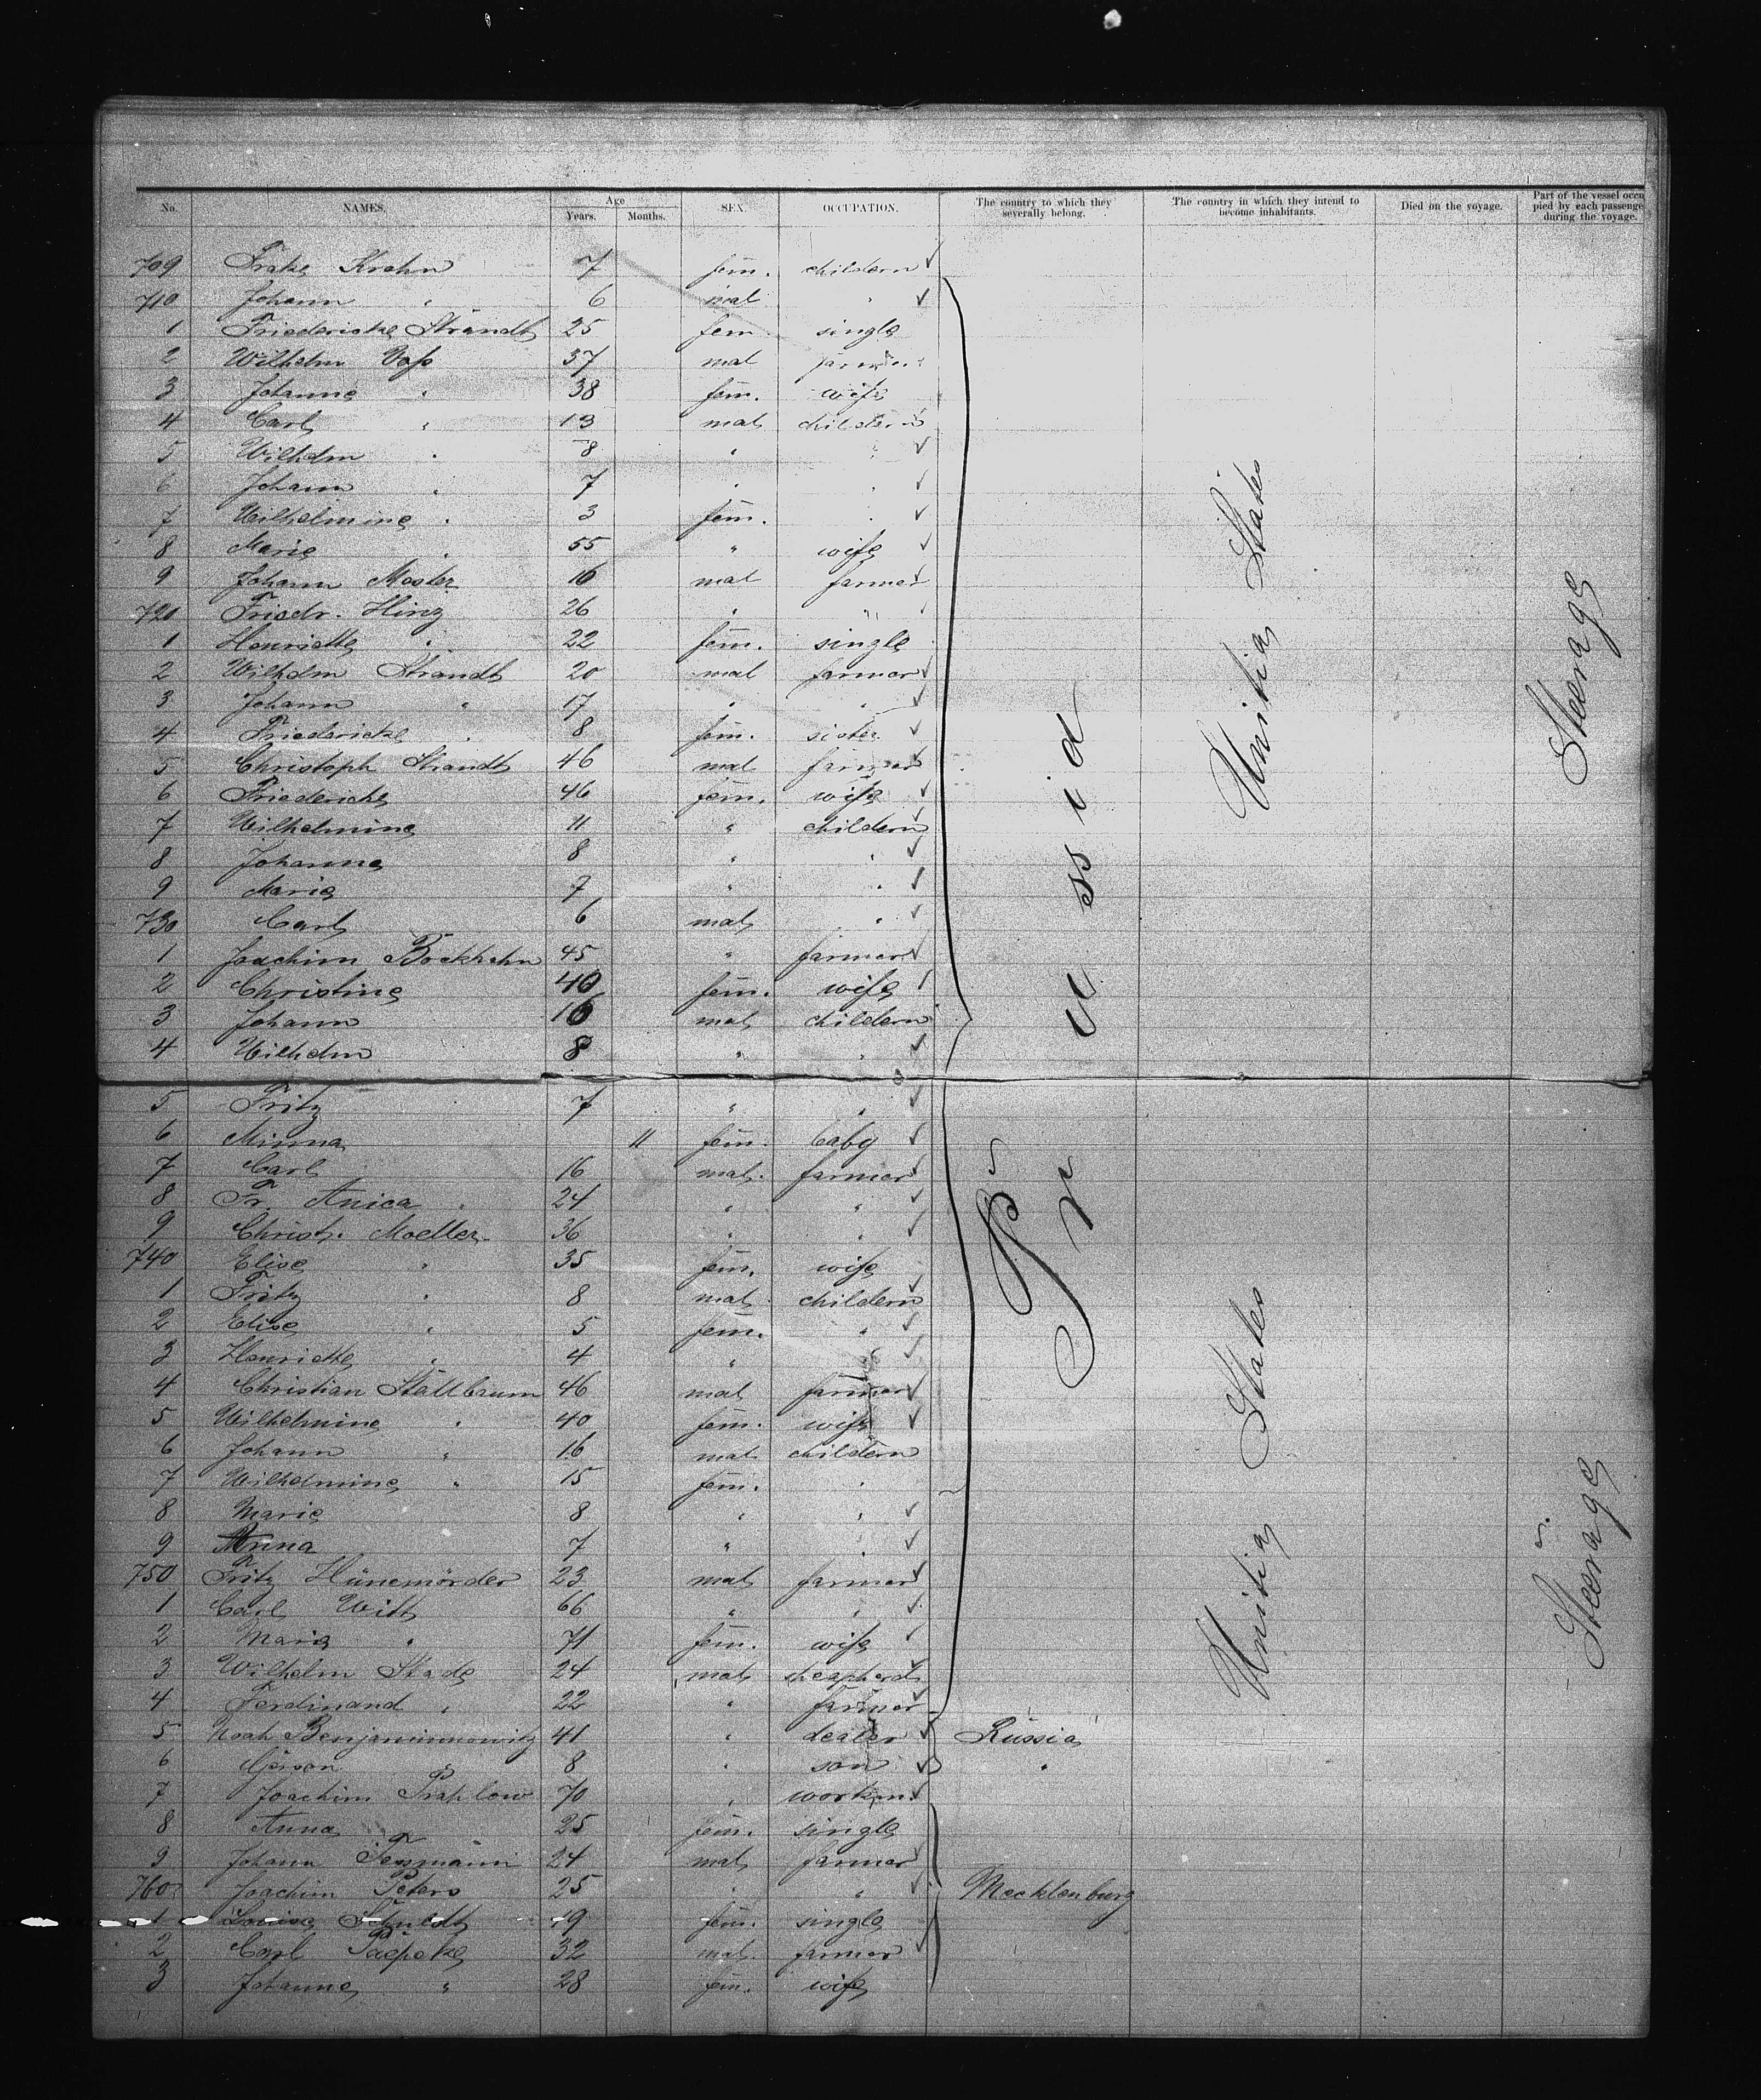 No. NAMES. Age Years. Months. SEX. OCCUPATION. The country to which they severally belong. The country in which they intend to become inhabitants. Died on the voyage. Part of the vessel occupied by each passenger during the voyage.
709 Krohn 7 fem. childern
710 Johann " 6 mal "
1 Friedericke Strandt 25 fem single
2 Wilhelm Voß 37 mal farmer
3 Johanne " 38 fem. wife
4 Carl " 13 mal childern
5 Wilhelm " 8 " "
6 Johann " 7 " "
7 Wilhelmine " 3 fem. "
8 Marie " 55 " wife
9 Johann Master 16 mal farmer
720 Friedr. Hinz 26 " "
1 Henriette " 22 fem. single
2 Wilhelm Strandt 20 mal farmer
3 Johann " 17 " "
4 Friedericke " 8 fem. sister
5 Christoph Strandt 46 mal farmer
6 Friedericke 46 fem. wife
7 Wilhelmine 11 " childern
8 Johanne 8 " "
9 Marie 7 " "
730 Carl 6 mal "
1 Joachim Bockhahn 45 " farmer
2 Christine 40 fem. wife
3 Johann 16 mal childern
4 Wilhelm 8 " "
5 Fritz 7 " "
6 Minna 11 fem. baby
7 Carl 16 mal. farmer
8 Fr. Anica " 24 " "
9 Christ. Moeller 36 " "
740 Elise " 35 fem. wife
1 Fritz " 8 mal childern
2 Elise " 5 fem. "
3 Henriette " 4 " "
4 Christian Stallbaum 46 mal farmer
5 Wilhelmine " 40 fem. wife
6 Johann " 16 mal childern
7 Wilhelmine " 15 fem. "
8 Marie 8 " "
9 Anna 7 " "
750 Fritz Hünemörder 23 mal farmer
1 Carl Witt 66 " "
2 Marie " 71 fem. wife
3 Wilhelm Stade 24 mal sheapherd
4 Ferdinand " 22 " farmer
5 Noah Benjaminowitz 41 " dealer Russia
6 Gerson 8 " son "
7 Joachim Prahlow 70 " workm.
8 Anna 25 fem. single
9 Johann Tessmann 24 mal farmer
760 Joachim Peters 25 " " Mecklenburg
1 Louise Schuldt 19 fem. single
2 Carl Paepcke 32 mal. farmer
3 Johanne " 28 fem. wife
Prussia
Unitia States
Unitia States
Steerage
Steerage